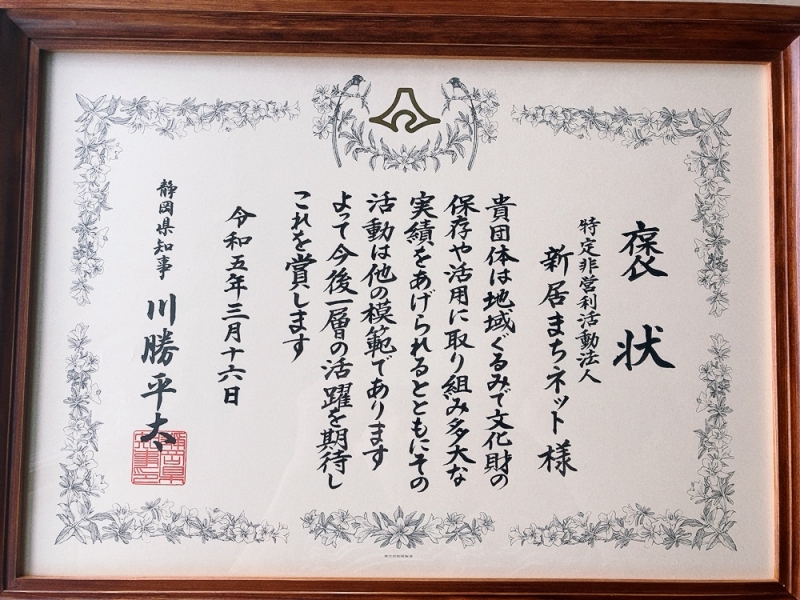 褒状
特定非営利活動法人
新居まちネット 様
貴団体は地域ぐるみで文化財の
保存や活用に取り組み多大な
実績をあげられるとともにその
活動は他の模範であります
よって今後一層の活躍を期待し
これを賞します
令和五年三月十六日
静岡県知事 川勝平太